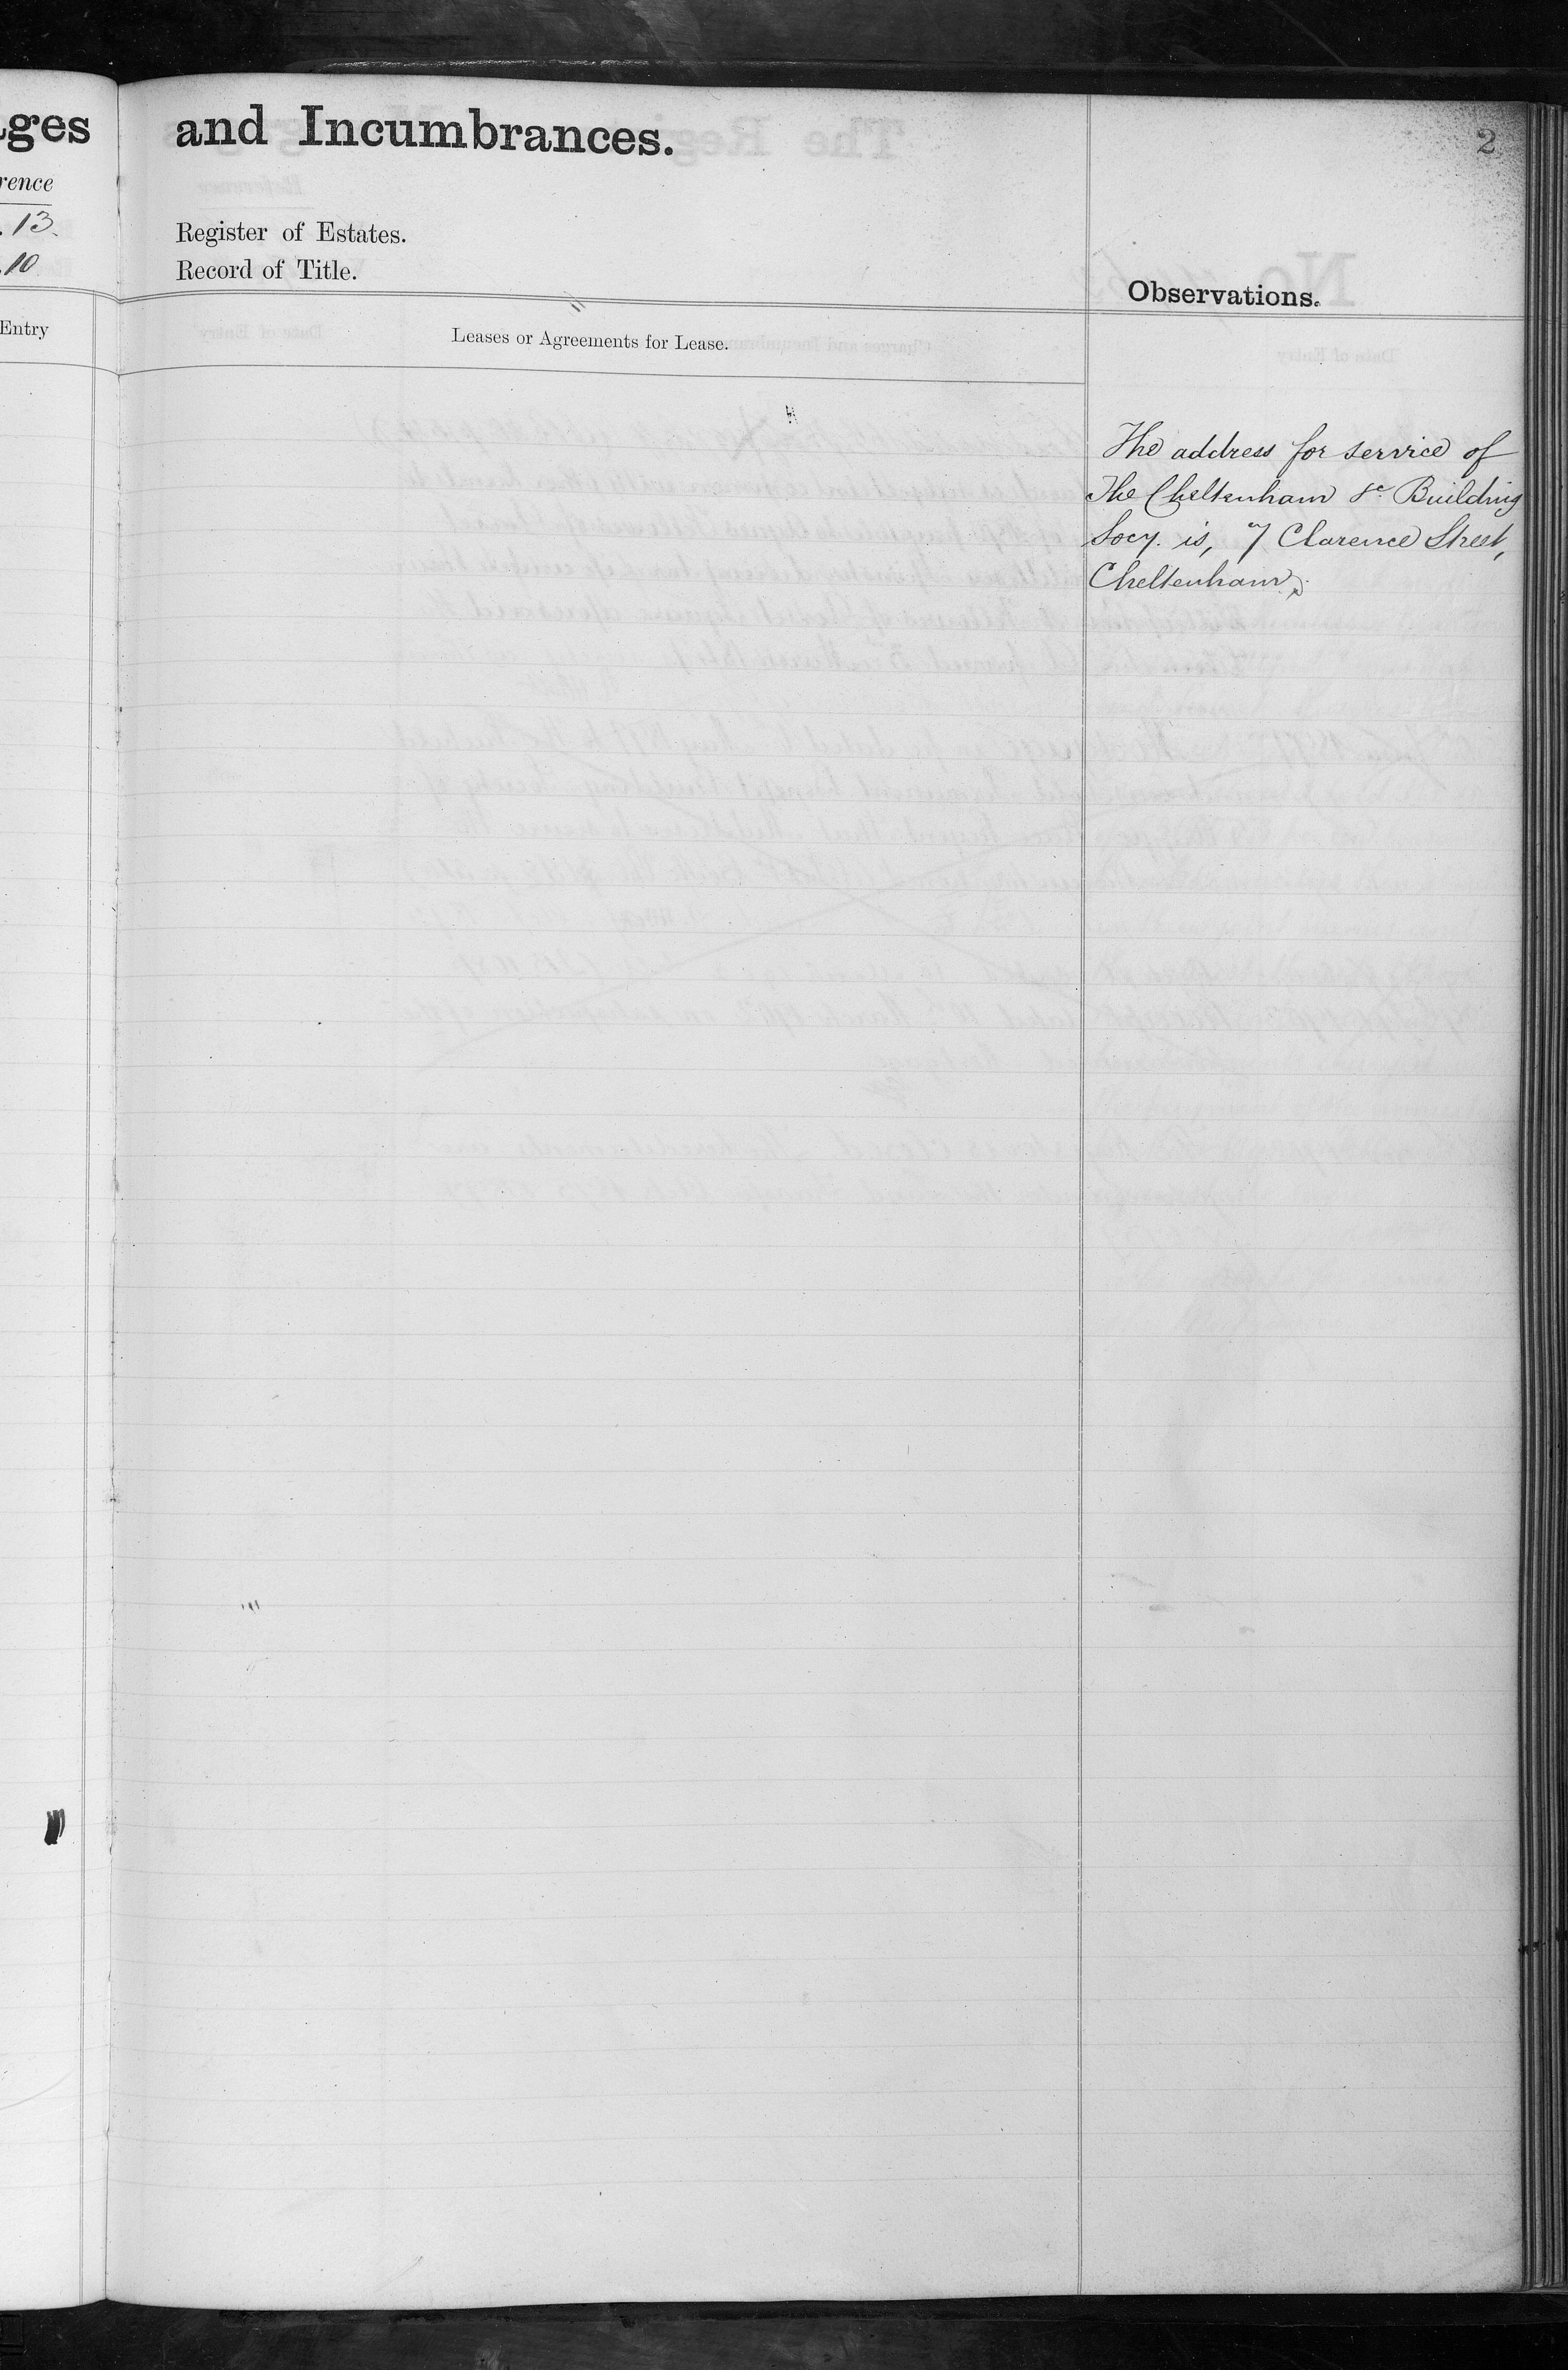 ges
and Incumbrances.
2
rence
13.
Register of Estates.
10
Record of Title.
Observations.
Entry
Leases or Agreements for Lease.
The address for service of
The Cheltenham &c Building
Socy. is, 7 Clarence Street,
Cheltenham.